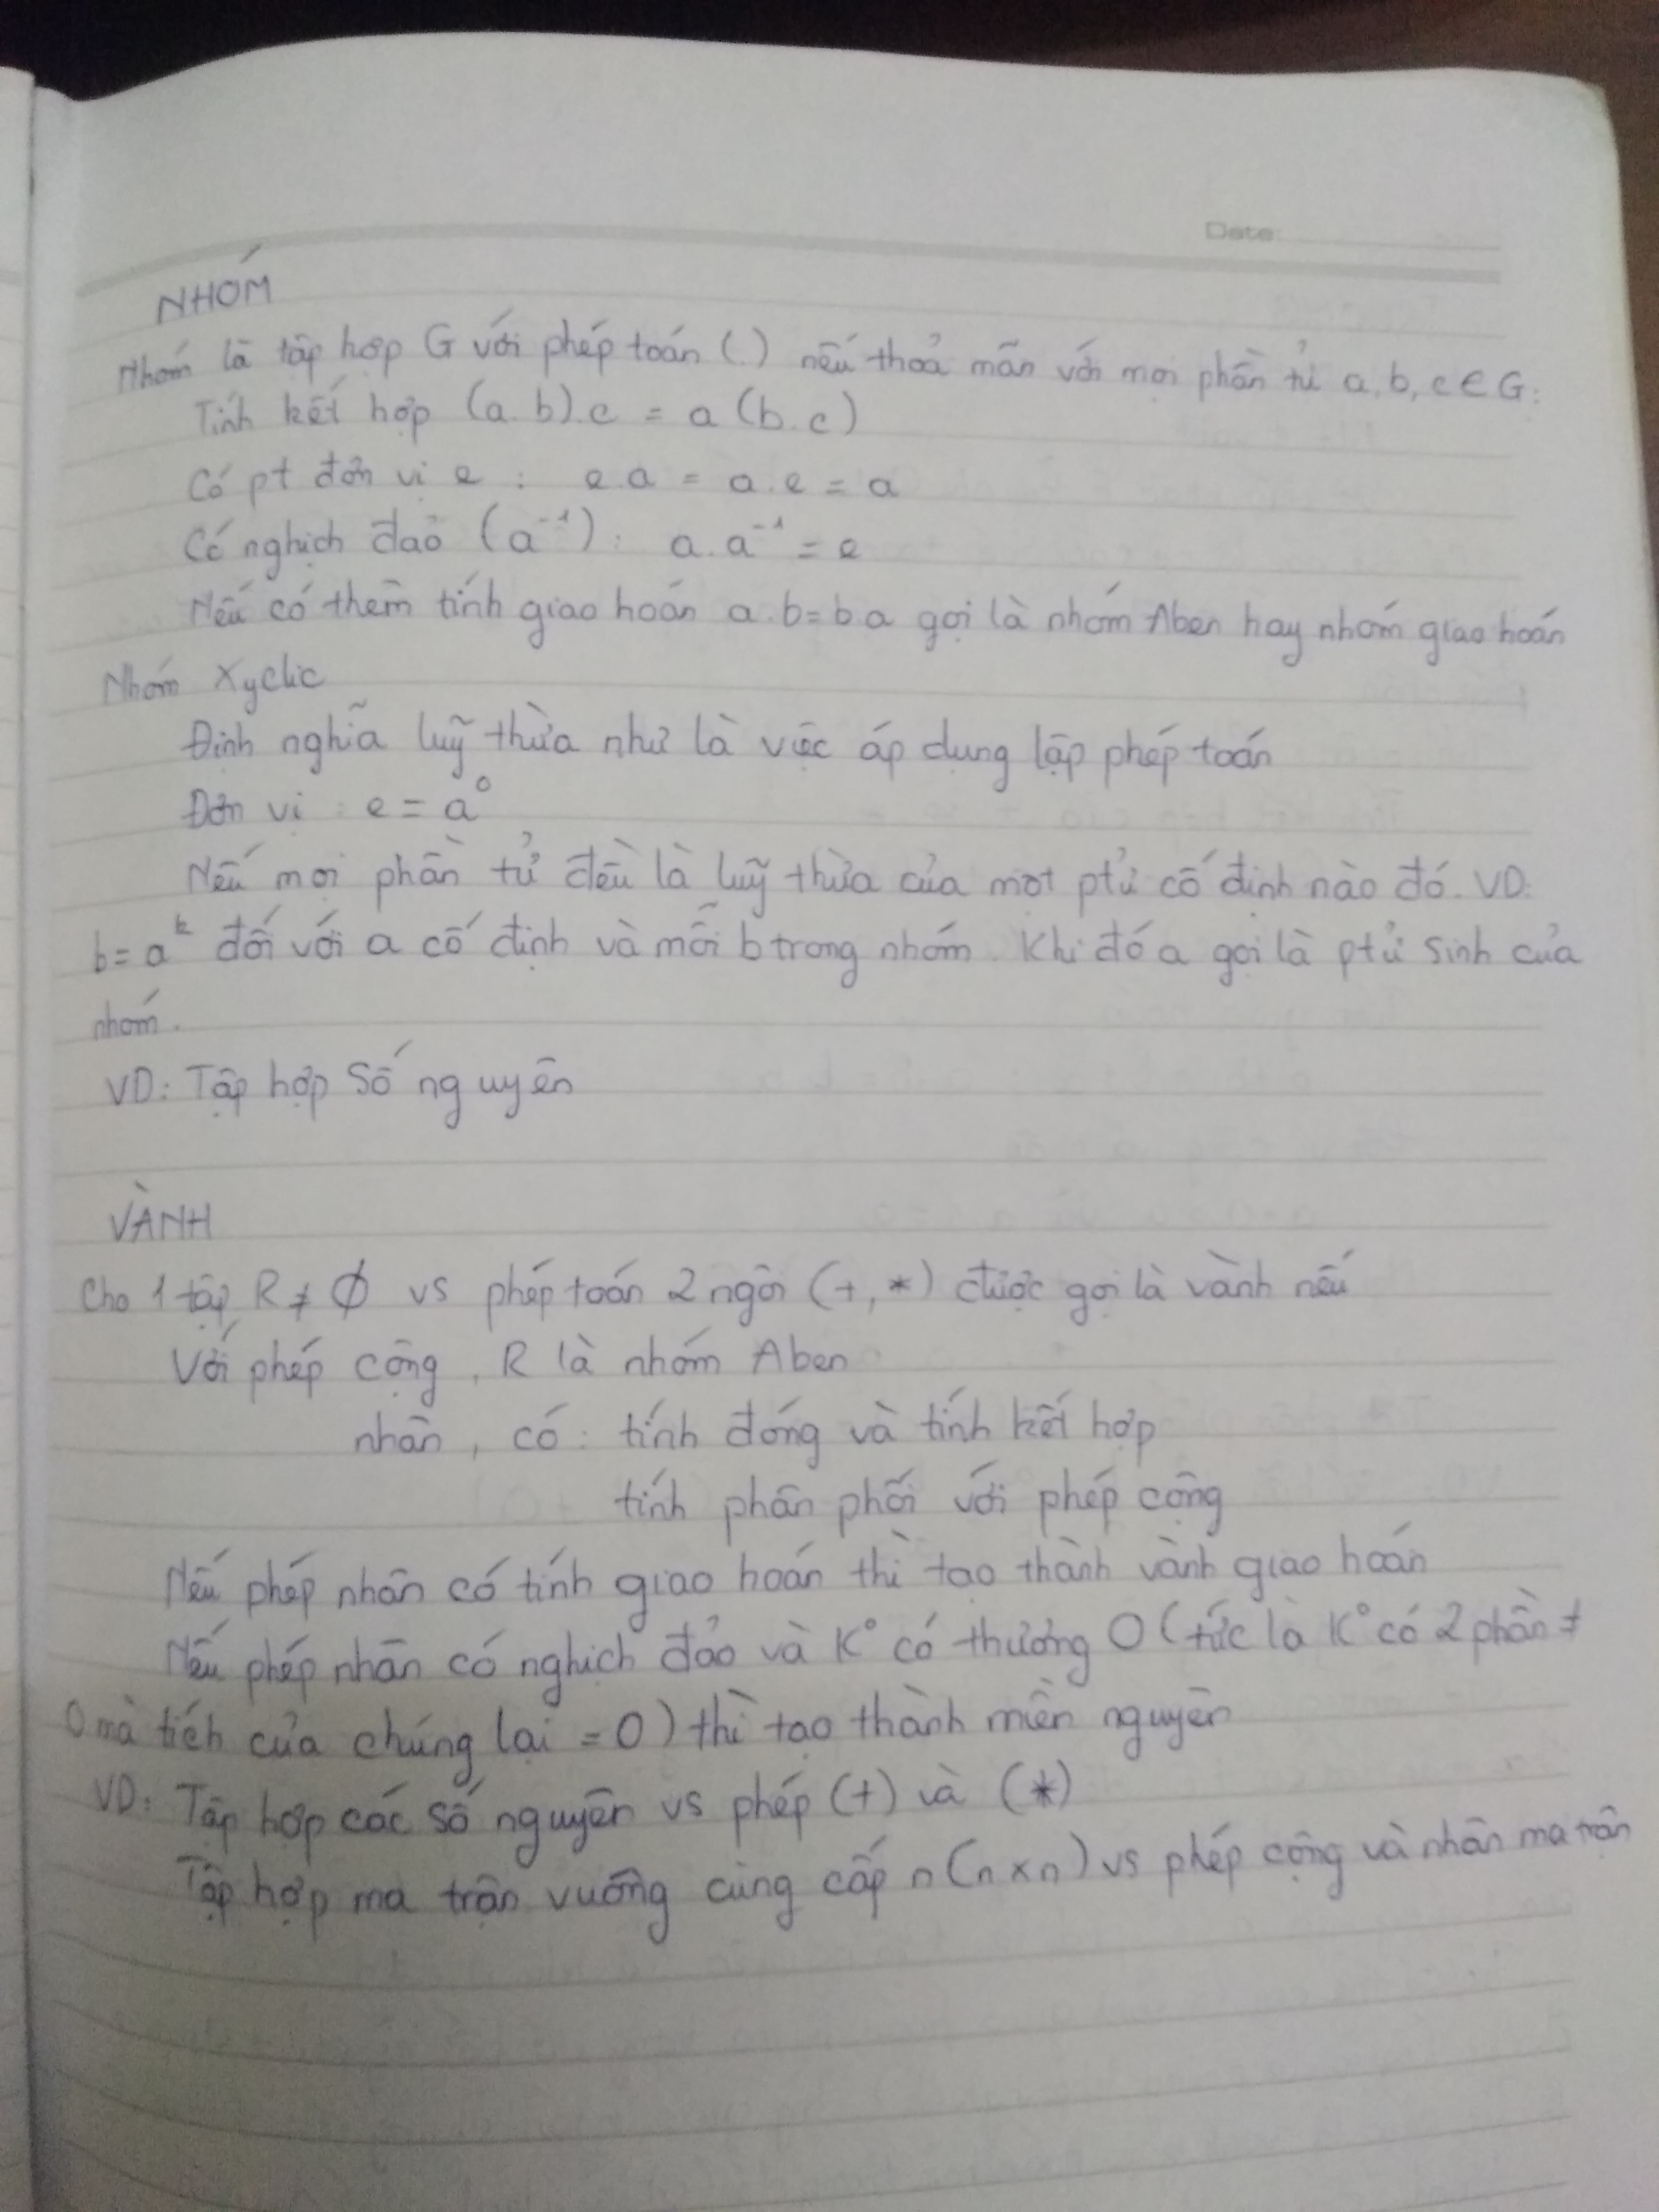 Date:
NHÓM
Nhóm là tập hợp G với phép toán (.) nếu thoả mãn với mọi phần tử a, b, c ∈ G:
Tính kết hợp (a.b).c = a(b.c)
Có pt đơn vị e : e.a = a.e = a
Có nghịch đảo (a⁻¹) : a.a⁻¹ = e
Nếu có thêm tính giao hoán a.b = b.a gọi là nhóm Aben hay nhóm giao hoán
Nhóm Xyclic
Định nghĩa luỹ thừa như là việc áp dụng lặp phép toán
Đơn vị : e = a⁰
Nếu mọi phần tử đều là luỹ thừa của một ptử cố định nào đó. VD:
b = aᵏ đối với a cố định và mỗi b trong nhóm. Khi đó a gọi là ptử sinh của
nhóm.
VD: Tập hợp số nguyên
VÀNH
Cho 1 tập R ≠ ∅ vs phép toán 2 ngôi (+, *) được gọi là vành nếu
Với phép cộng, R là nhóm Aben
nhân, có: tính đóng và tính kết hợp
tính phân phối với phép cộng
Nếu phép nhân có tính giao hoán thì tạo thành vành giao hoán
Nếu phép nhân có nghịch đảo và K° có thương 0 (tức là K° có 2 phần ≠
0 mà tích của chúng lại = 0) thì tạo thành miền nguyên
VD: Tập hợp các số nguyên vs phép (+) và (*)
Tập hợp ma trận vuông cùng cấp n (n × n) vs phép cộng và nhân ma trận